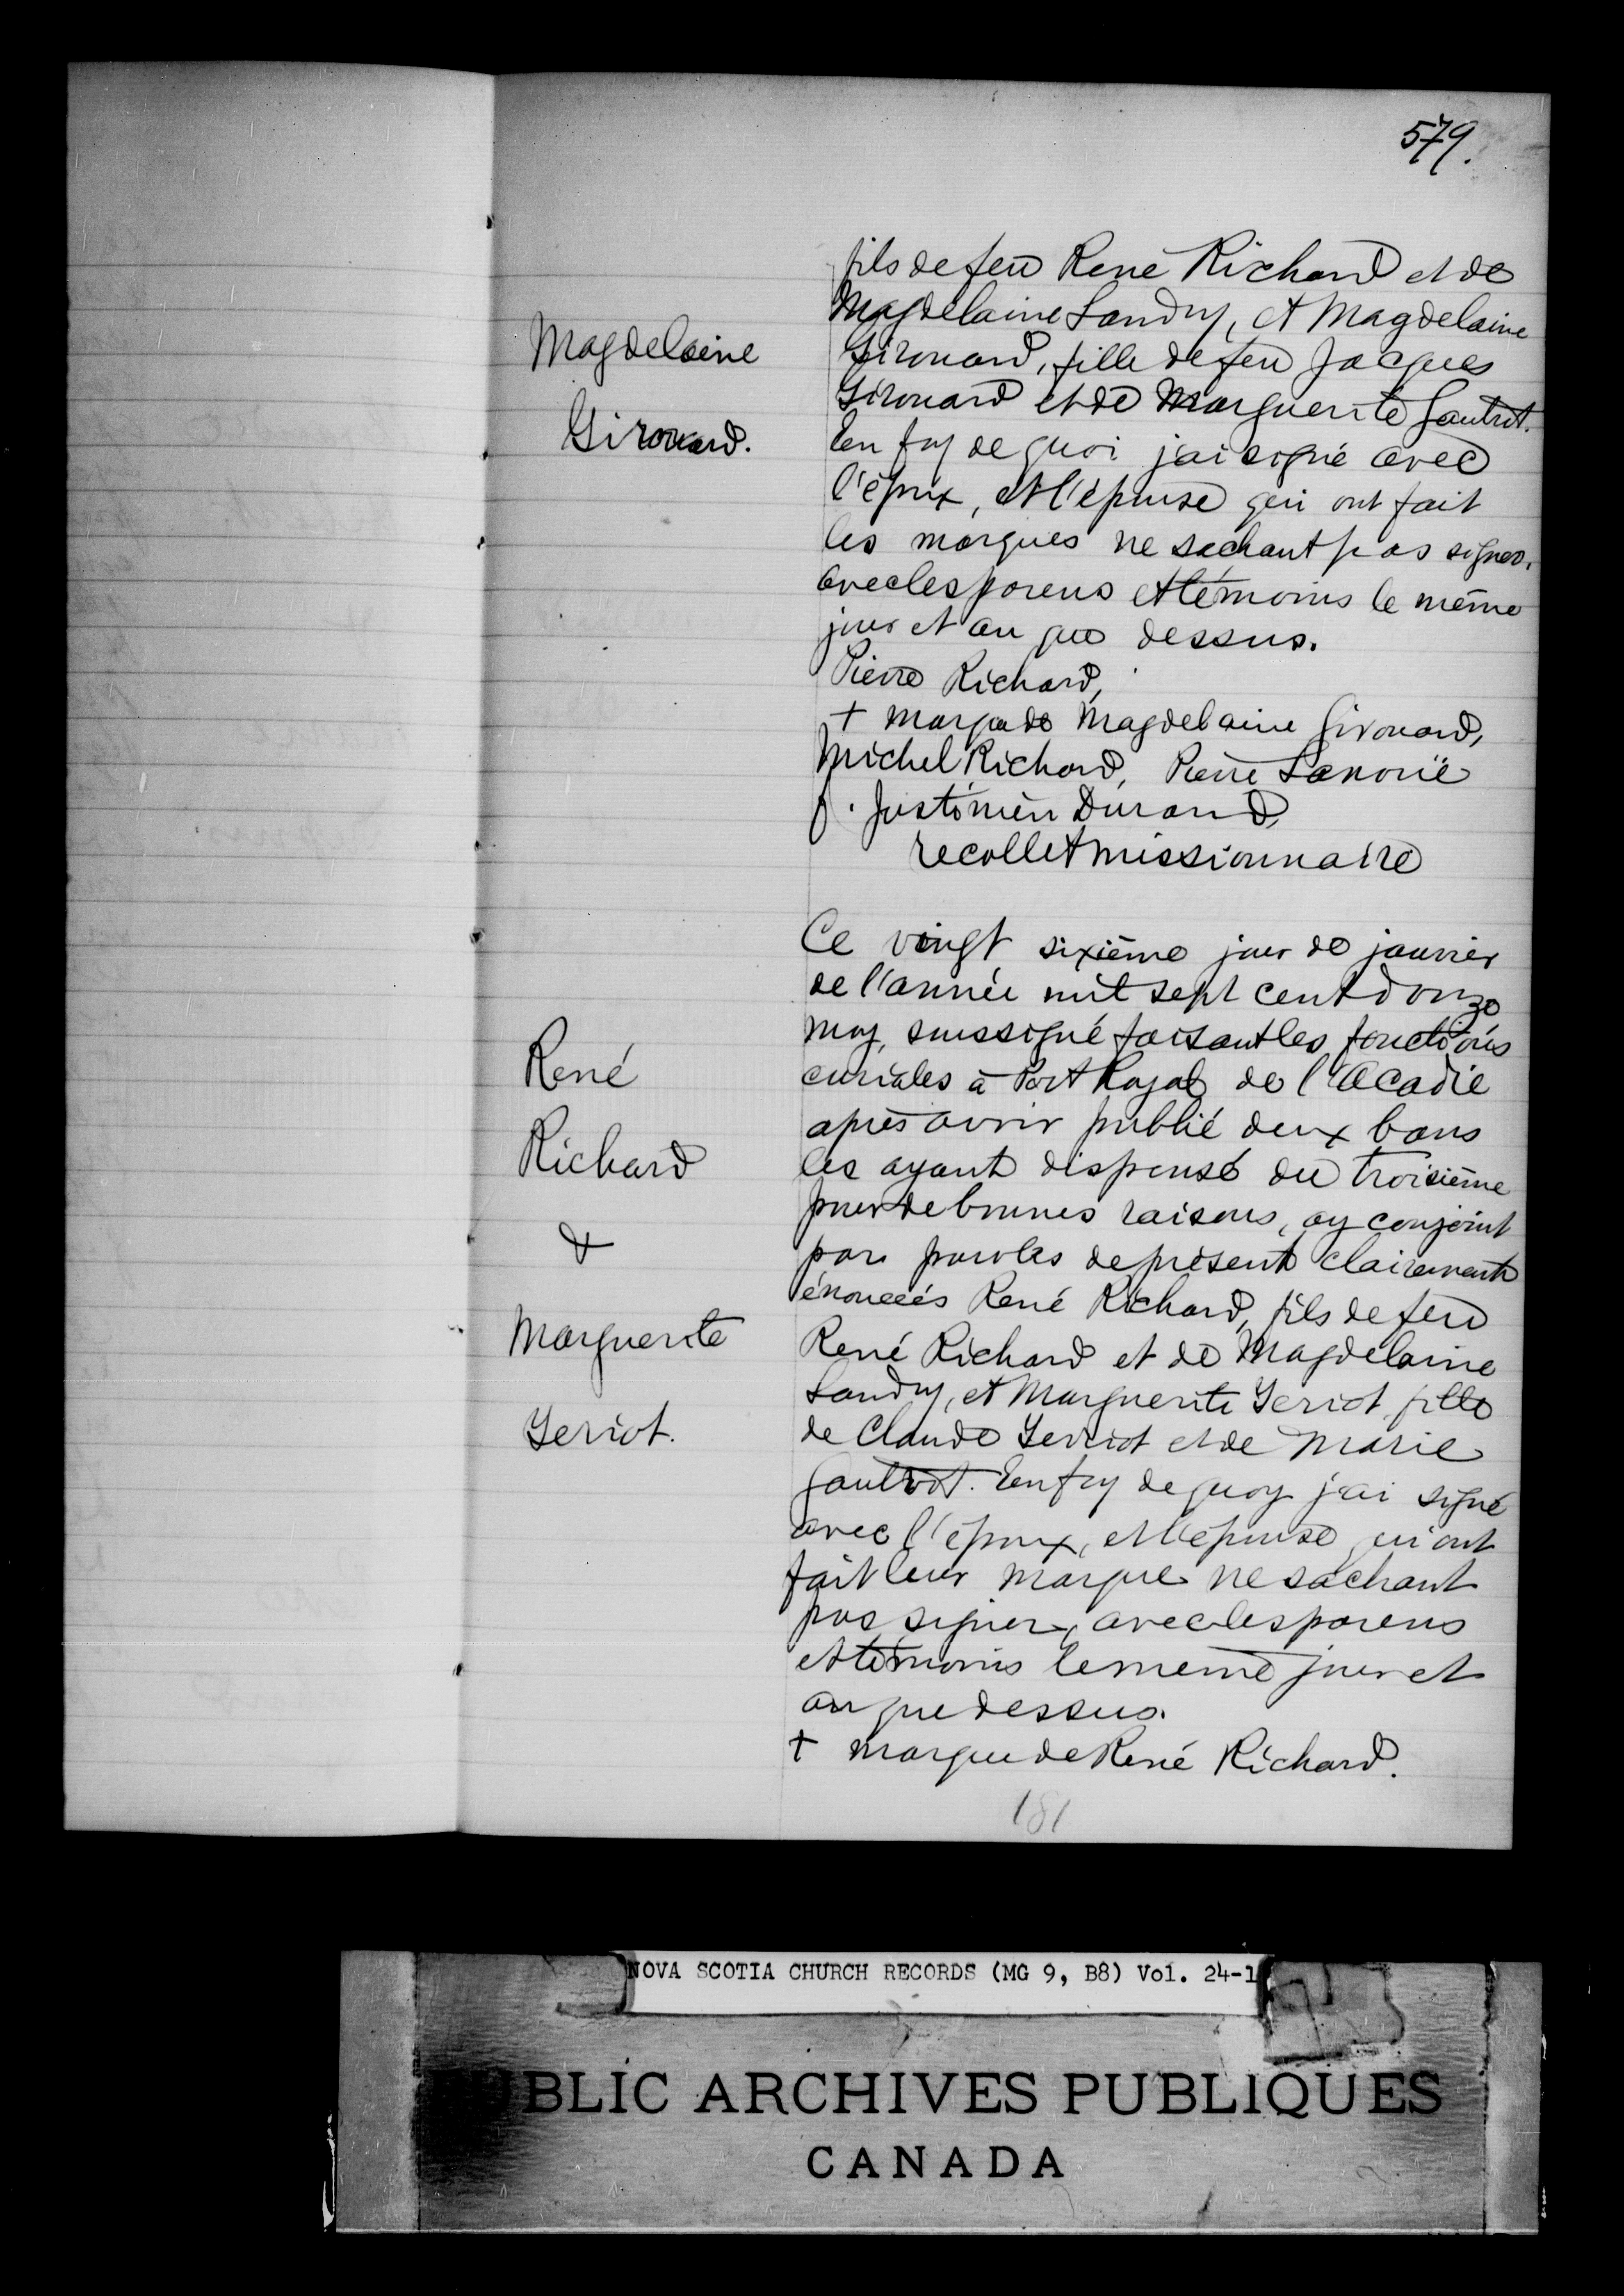 579.
fils de feu René Richard et de
Magdelaine Landry, et Magdelaine
Magdelaine
Girouard, fille de feu Jacques
Girouard et de Marguerite Gautrot.
Girouard.
En foy de quoi j'ai signé avec
l'époux, et l'épouse qui ont fait
les marques ne sachant pas signer,
avec les parens et témoins le même
jour et an que dessus.
Pierre Richard,
+ marque de Magdelaine Girouard,
Michel Richard, Pierre Lanoüe
f. Justinien Durand,
recollet missionnaire
Ce vingt sixième jour de janvier
de l'année mil sept cent douze
moy, soussigné faisant les fonctions
René
curiales à Port Royal de l'Acadie
après avoir publié deux bans
Richard
les ayant dispensé du troisième
pour de bonnes raisons, ay conjoint
&
par paroles de présent clairement
énoncées René Richard, fils de feu
Marguerite
René Richard et de Magdelaine
Landry, et Marguerite Teriot fille
Teriot.
de Claude Terriot et de Marie
Gautrot. En foy de quoy j'ai signé
avec l'époux, et l'épouse qui ont
fait leur marque ne sachant
pas signer, avec les parens
et témoins le meme jour et
an que dessus.
+ marque de René Richard.
181
NOVA SCOTIA CHURCH RECORDS (MG 9, B8) Vol. 24-1
PUBLIC ARCHIVES PUBLIQUES
CANADA